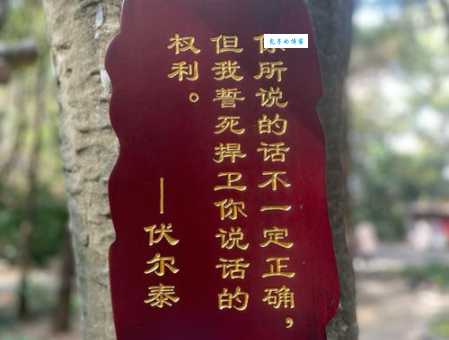 你所说的话不一定正确，
但我誓死捍卫你说话的
权利。
——伏尔泰